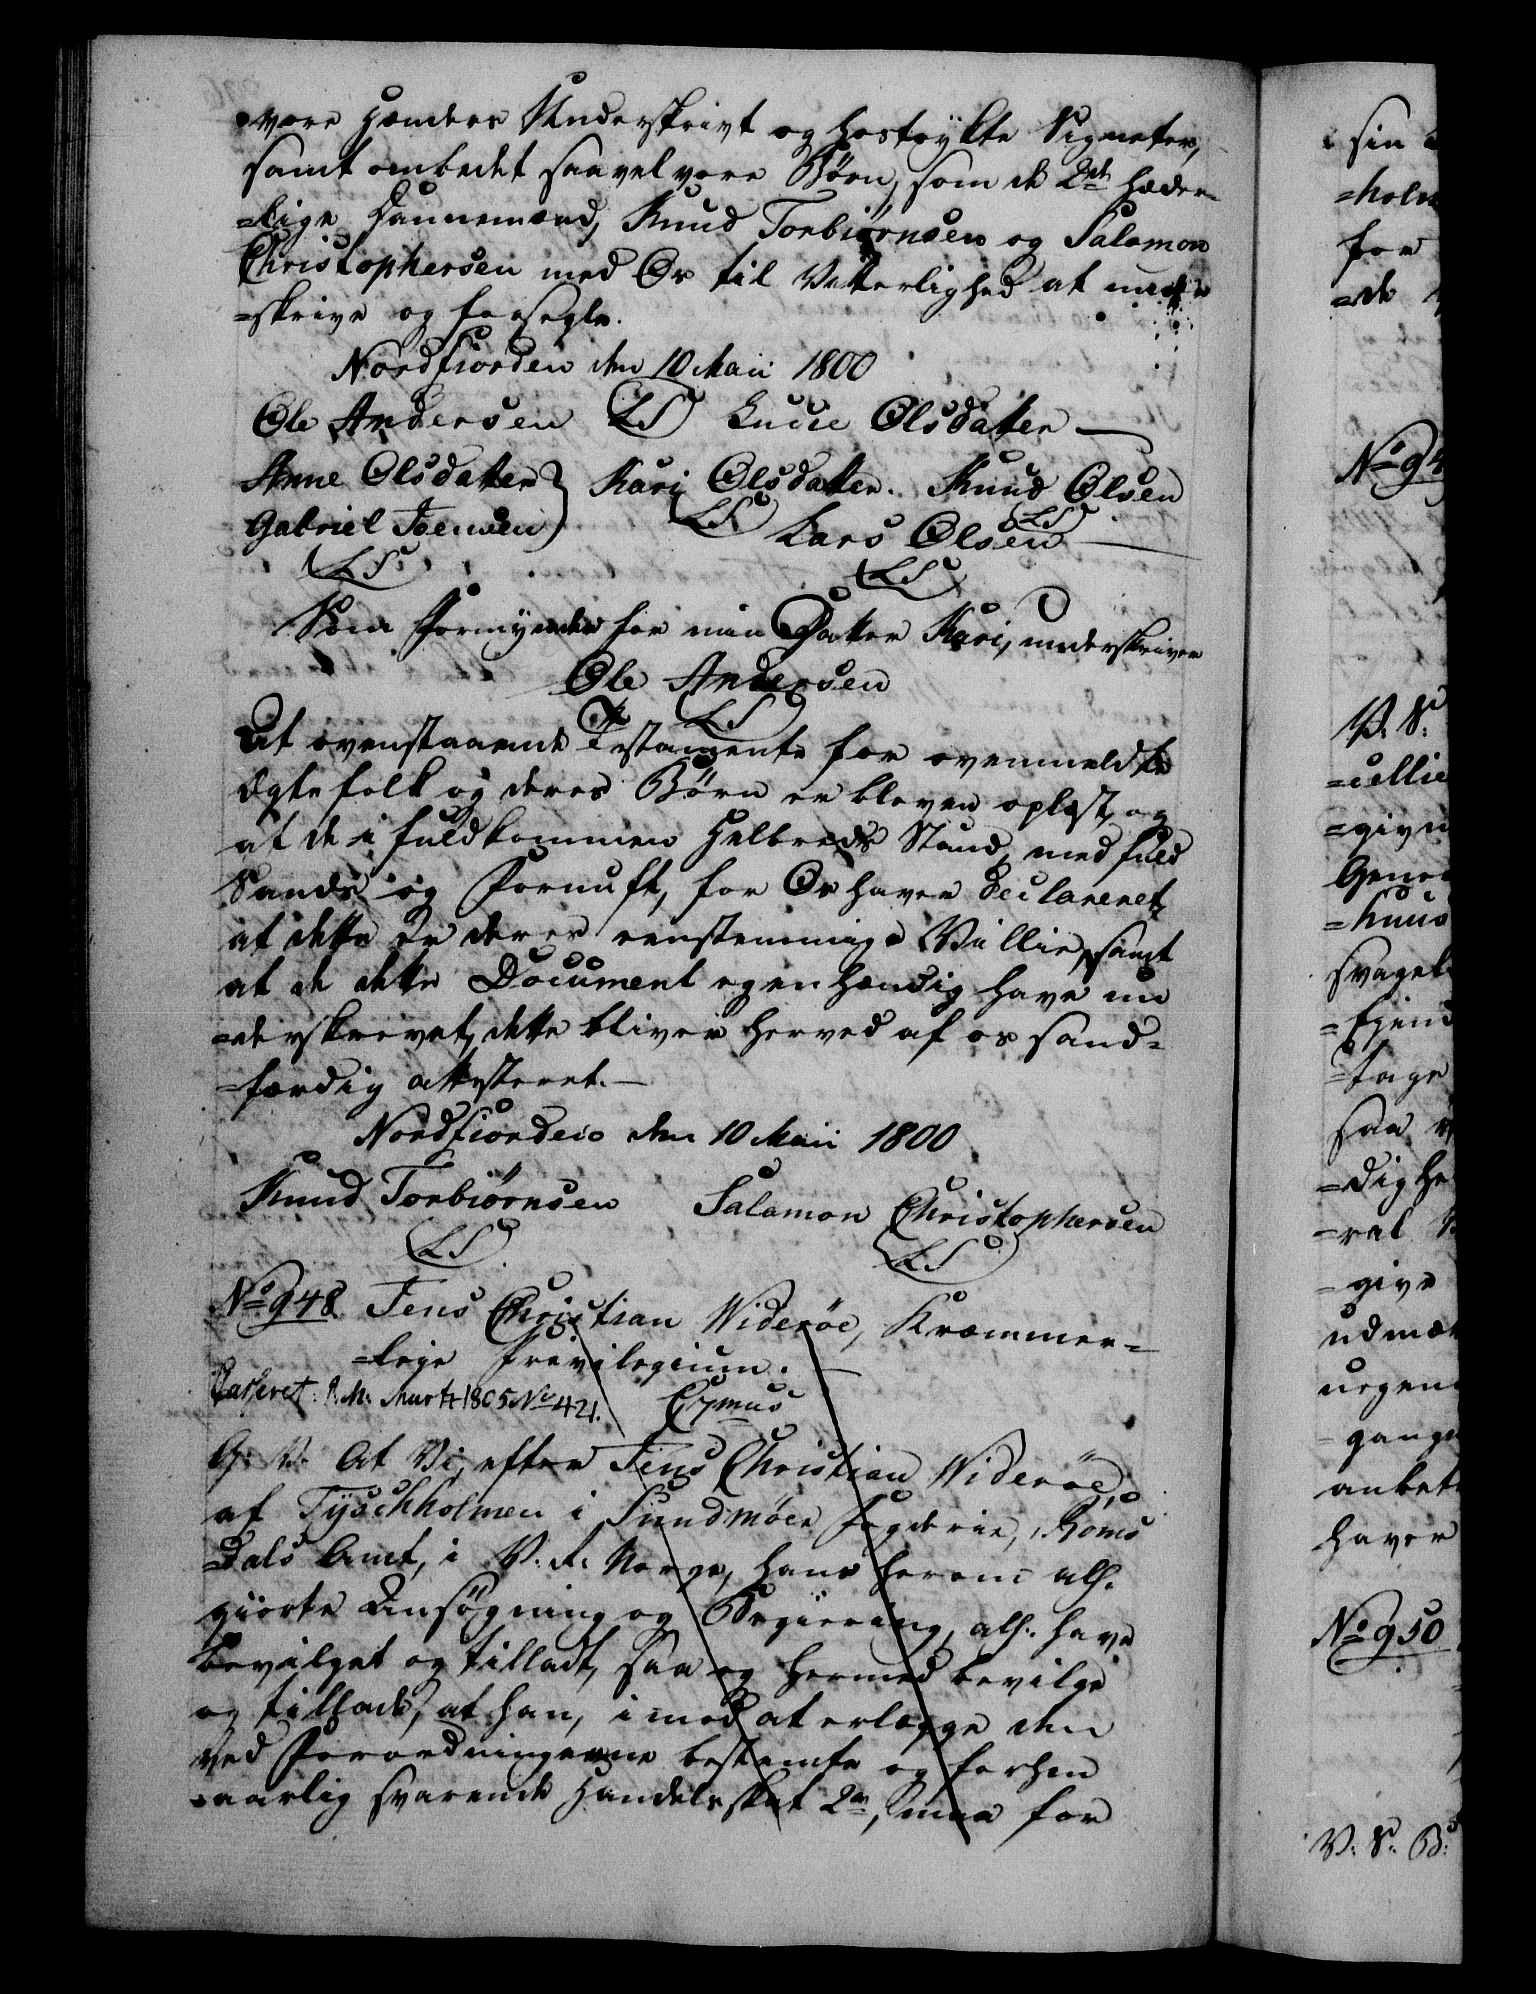 vore Hænders Underskrivt og hostrykte Signeter,
samt ombedet saavel vore Børn, som de 2de hæder-
=lige Dannemænd, Knud Torbiørnsen og Salomon
Christophersen med Os til Vitterlighed at under
=skrive og forsegle.
Nordfiorden den 10 Maii 1800
Ole Andersen LS Lucie Olsdatter
Anne Olsdatter Kari Olsdatter. Knud Olsen
Gabriel Joensen LS LS
Lars Olsen
LS LS
Som Formynder for min Datter Kari, underskriver
Ole Andersen
LS
At ovenstaaende Testamente for ovenmeldte
Ægtefolk og deres Børn er bleven oplæst, og
at de i fuldkommen Helbreds Stand, med fuld
Sands og Fornuft, for Os haver declareret,
at dette er deres eenstemmige Villie, samt
at de dette Document egenhændig have un
=derskrevet, dette bliver herved af os sand=
=færdig attesteret.
Nordfiorden den 10 Maii 1800
Knud Torbiørnsen Salamon Christophersen
LS LS
No 948 Jens Christian Widerøe, Kræmmer=
=leye Privilegium.
Casseret: P.M. Mart 1805 No 421. Cymus
G: V. At Vi, efter Jens Christian Widerøe,
af Tyschholmen i Sundmøer Fogderie, Roms
=dals Amt, i V. R. Norge, hans herom all.
giorte Ansøgning og Begiering, all. have
bevilget og tilladt, saa og hermed bevilge
og tillade, at han, imod at erlægge den
ved Forordningerne bestemte og forhen
aarlig svarende Handels skat 2, maa for
sin
=holm
for
=de
No 94
V. S:
=cellie
=given
Gene
=huus
svagel
=Eiend
=tage
saa
=dighe
=ral
=give
udmæ
uegen
gange
anbet
haver
No 950
V. S. B: